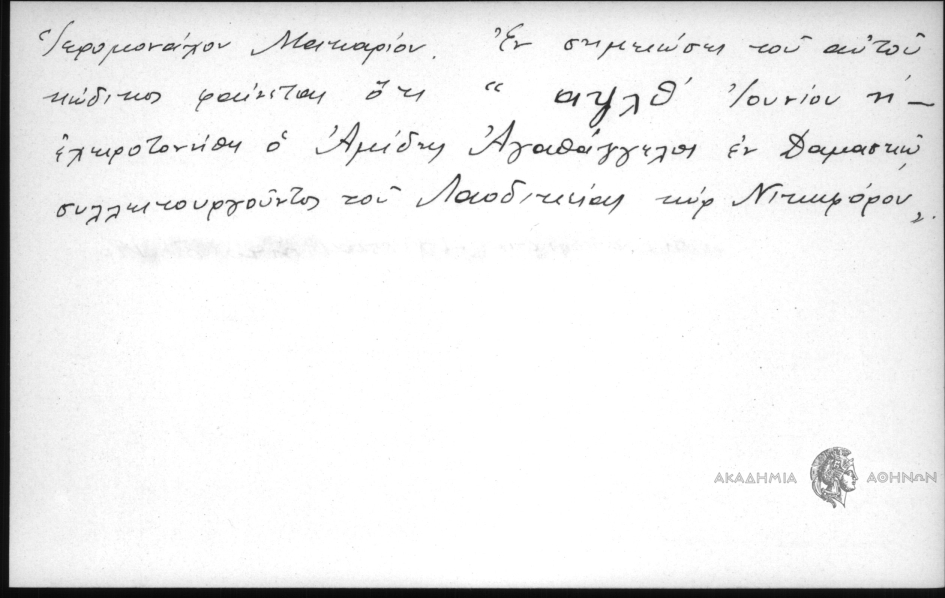 Ἱερομονάχου Μακαρίου. Ἐν σημειώσει τοῦ αὐτοῦ
κώδικος φαίνεται ὅτι “αψλθ Ἰουνίου η –
ἐχειροτονήθη ὁ Ἀμίδης Ἀγαθάγγελος ἐν Δαμασκῷ
συλλειτουργοῦντος τοῦ Λαοδικείας κύρ Νικηφόρου„.
ΑΚΑΔΗΜΙΑ ΑΘΗΝΩΝ